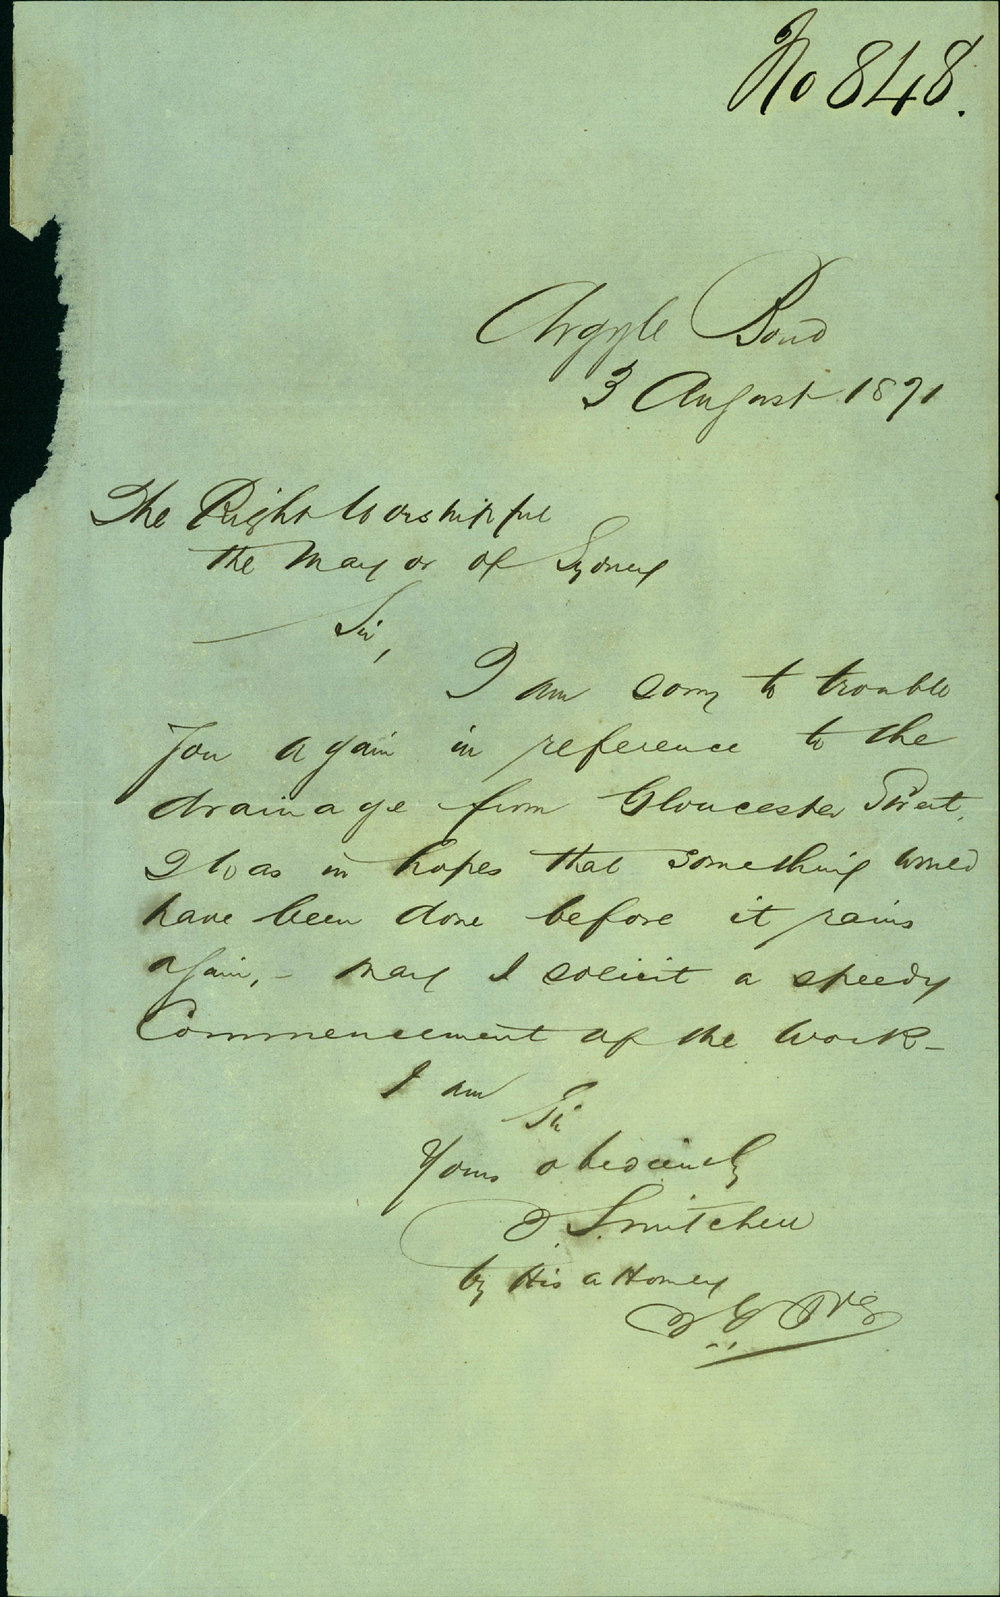 No 848.
Argyle Bond
3 August 1871
The Right Worshipful
the Mayor of Sydney
Sir,
I am sorry to trouble
you again in reference to the
drainage from Gloucester Street,
I was in hopes that something would
have been done before it rains
again, - may I solicit a speedy
Commencement of the work -
I am
Sir
Yours obediently
J. S. Mitchell
by His attorney